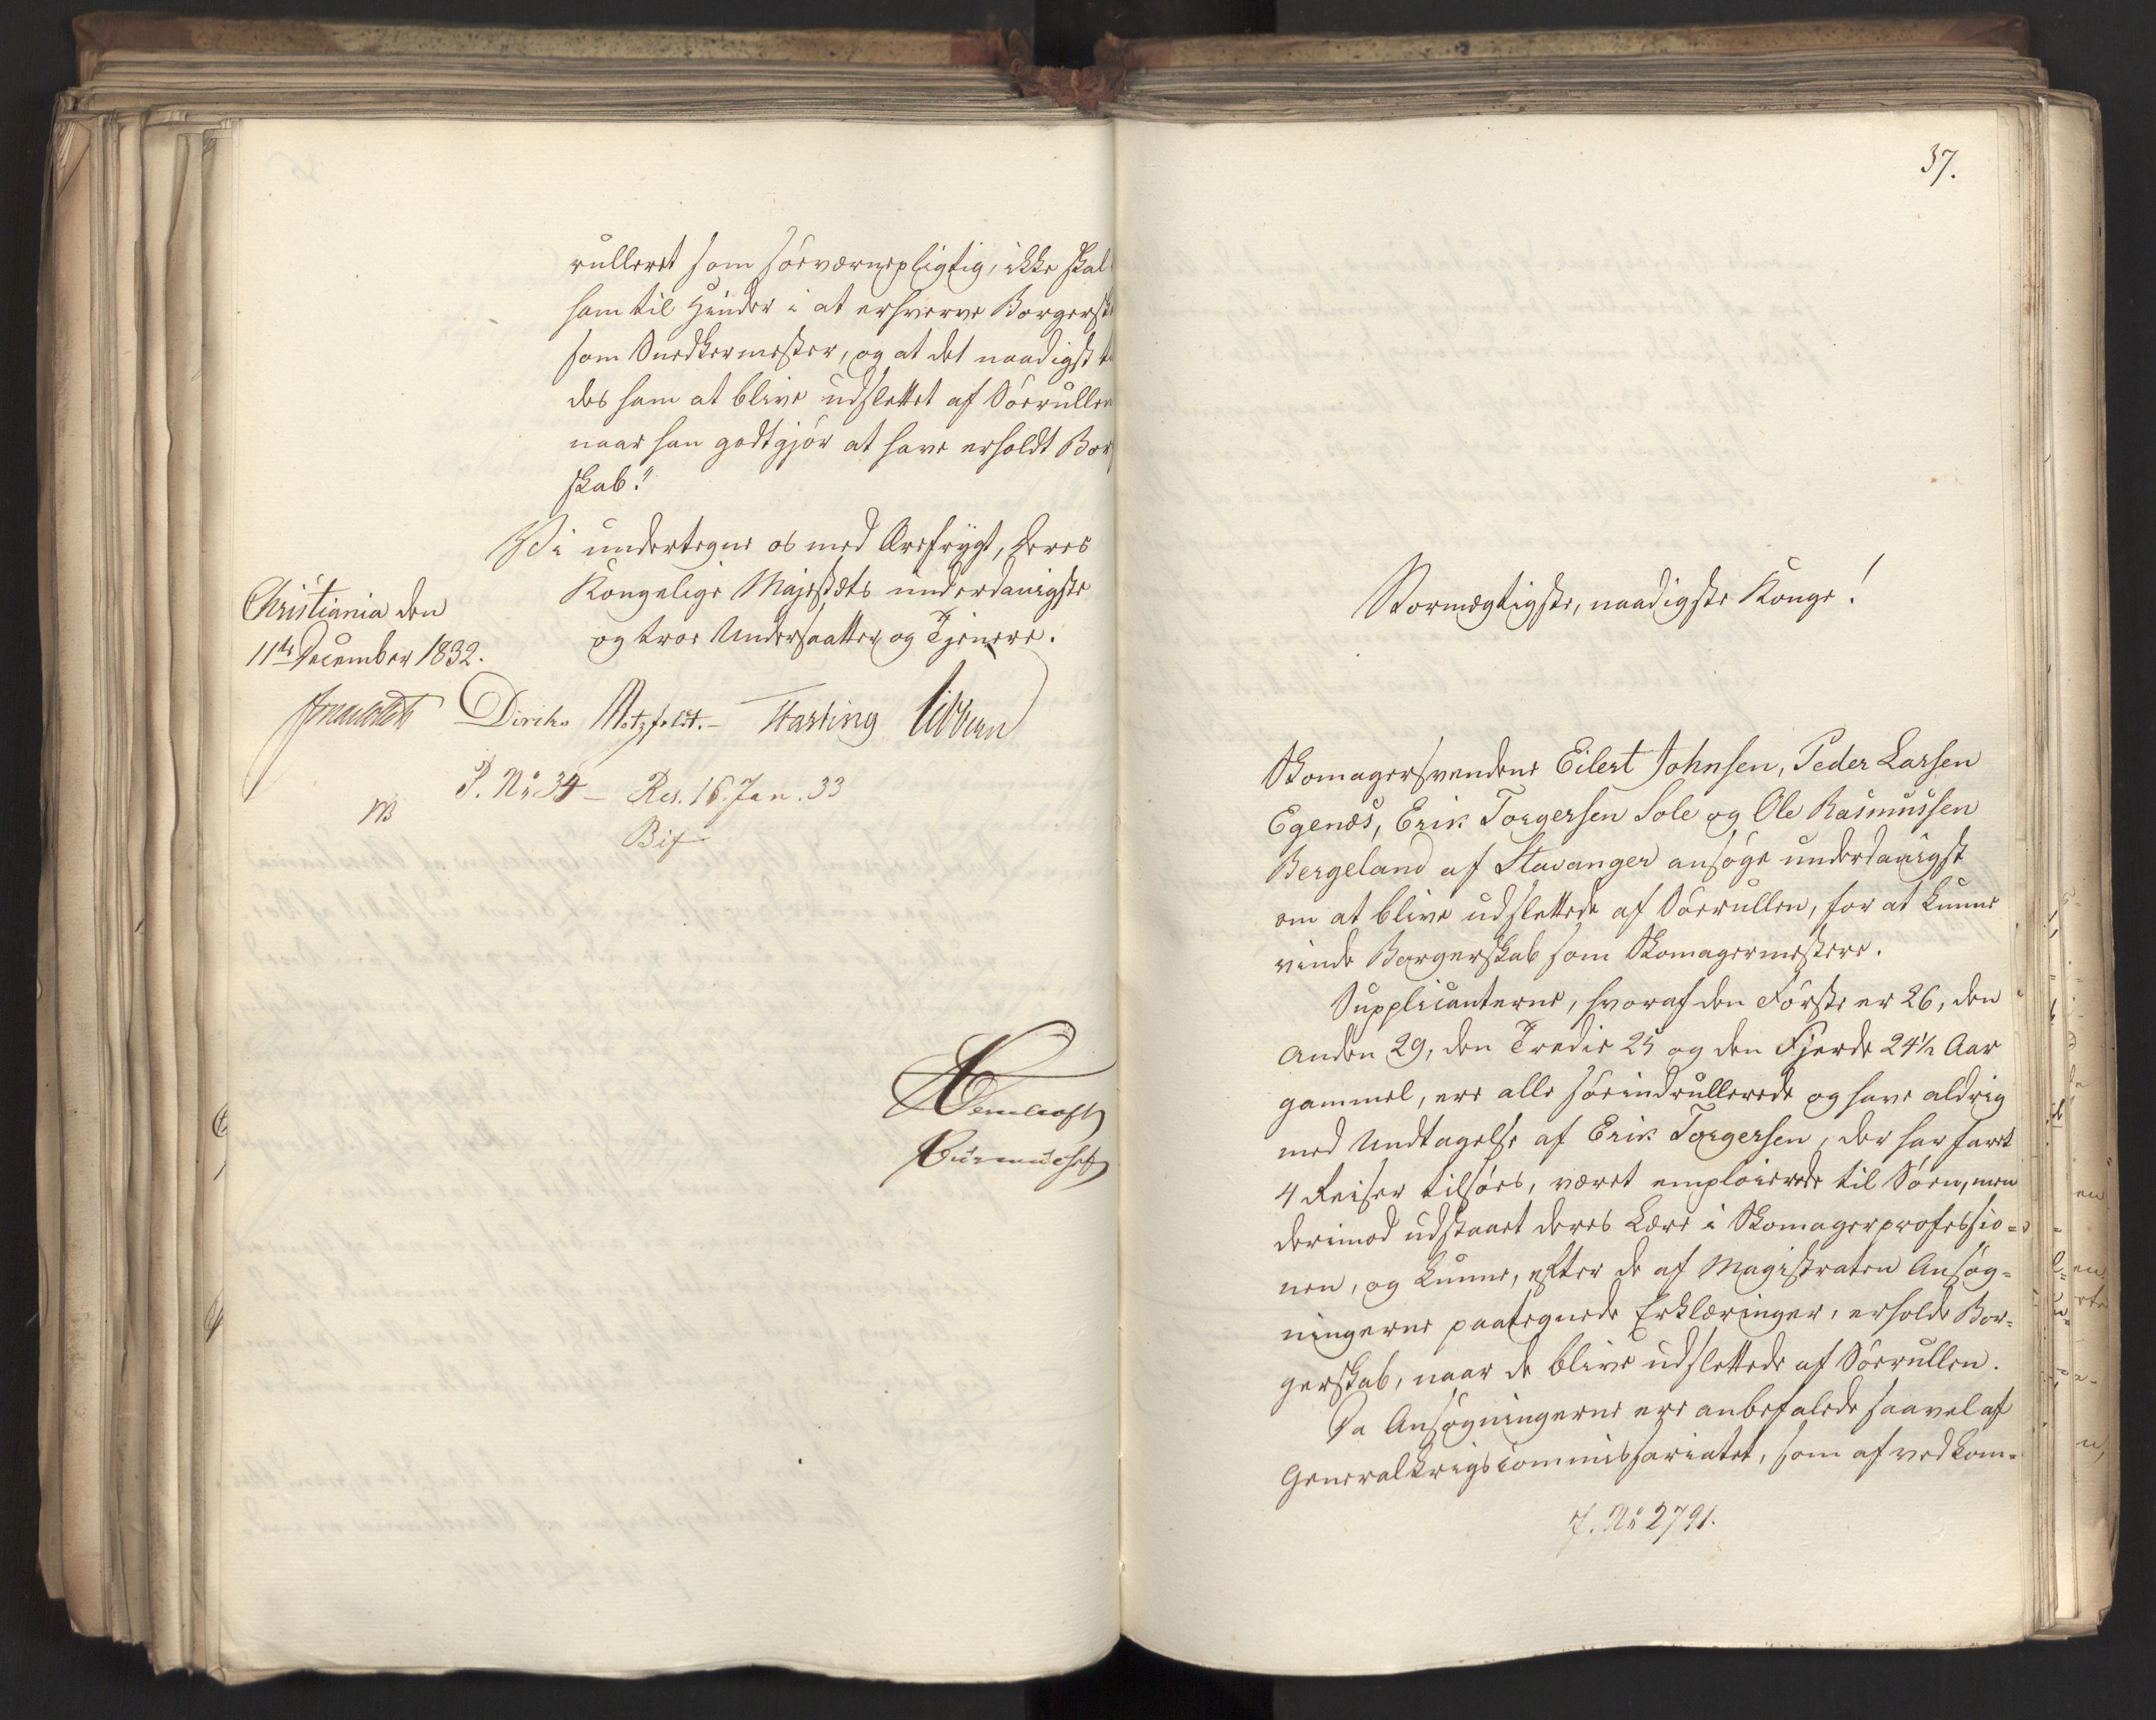 rulleret som søeværnepligtig, ikke skal
ham til Hinder i at erhverve Borgersk
som Snedkermester, og at det naadigst
des ham at blive udslettet af Søerullen
naar han godtgjør at have erholdt Bor
skab."
Vi undertegne os med Ærefrygt, Deres
Kongelige Majestæts underdanigste
og troe Undersaatter og Tjenere.
Christiania den
11te December 1832.
Diriks Motzfeldt.- Fasting Vibe
P. No 34 – Res. 16. Jan. 33
Bif
37.
Stormægtigste, naadigste Konge!
Skomagersvendene Eilert Johnsen, Peder Larsen
Egenæs, Erik Torgersen Sole og Ole Rasmussen
Bergeland af Stavanger ansøge underdanigst
om at blive udslettede af Søerullen, for at kunne
vinde Borgerskab som Skomagermestere.
Supplicanterne, hvoraf den Første er 26, den
Anden 29, den Tredie 25 og den Fjerde 24½ Aar
gammel, ere alle søeindrullerede og have aldrig
med Undtagelse af Erik Torgersen, der har faret
4 Reiser tilsøes, været employerede til Søen, men
derimod udstaaet deres Lære i Skomagerprofessio=
nen, og kunne, efter de af Magistraten Ansøg=
ningerne paategnede Erklæringer, erholde Bor=
gerskab, naar de blive udslettede af Søerullen.
Da Ansøgningerne ere anbefalede saavel af
Generalkrigscommissariatet, som af vedkom=
J. No 2791.